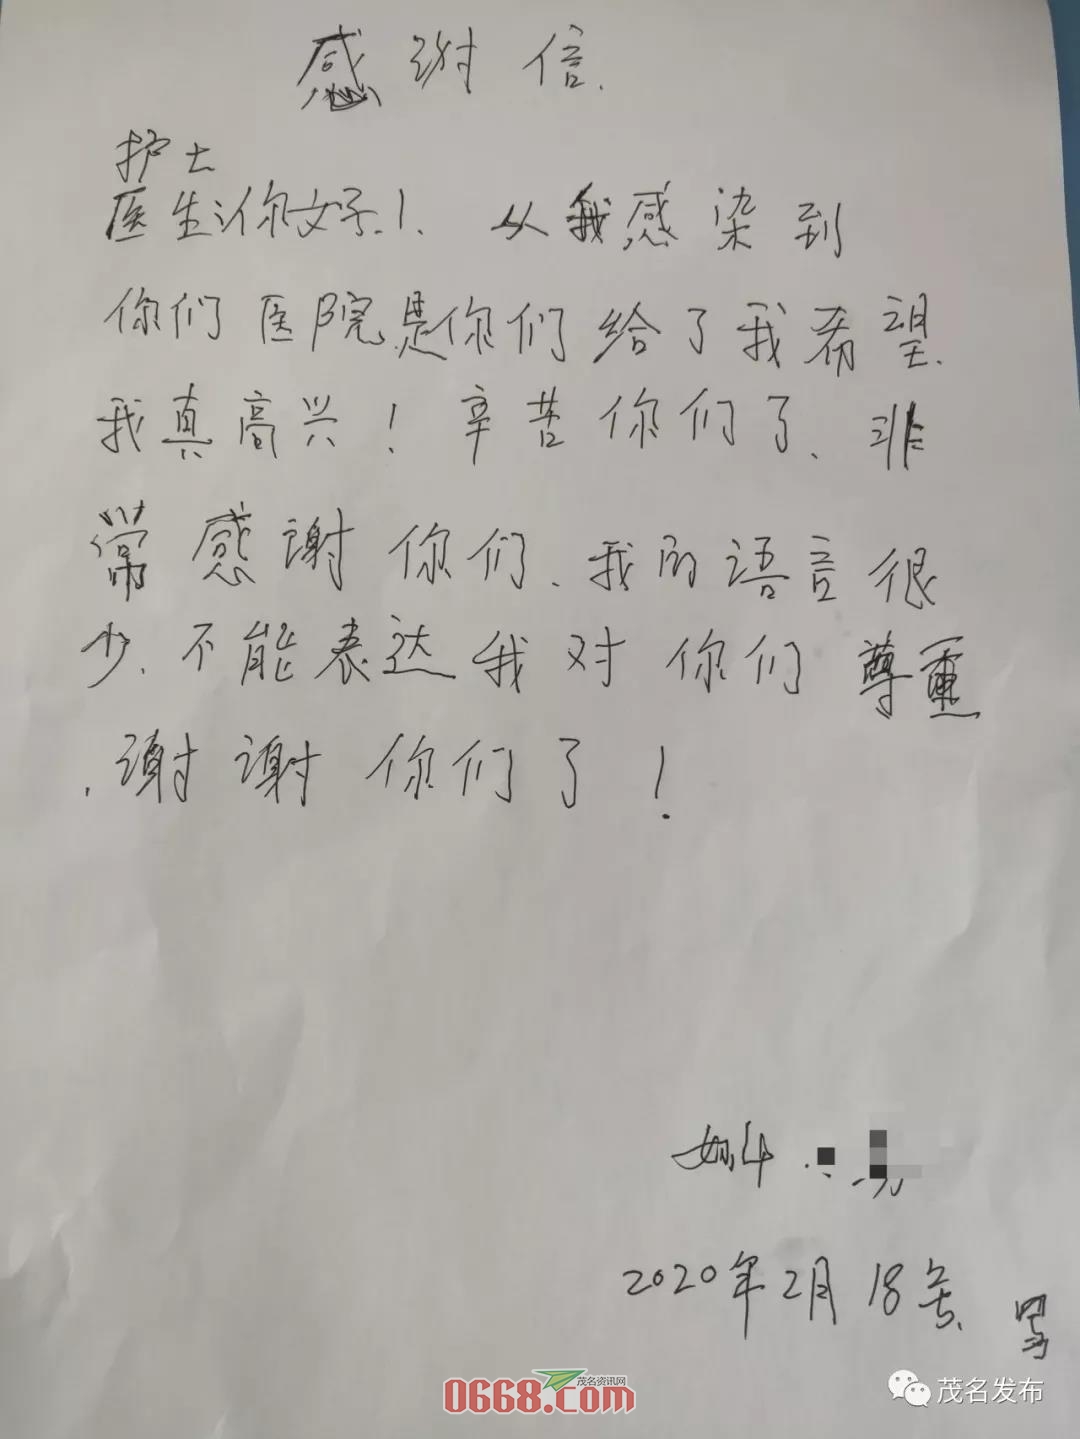 感谢信.
护士
医生们你好！从我感染到
你们医院是你们给了我希望.
我真高兴！辛苦你们了、非
常感谢你们、我的语言很
少、不能表达我对你们尊重
、谢谢你们了！
2020年2月18号
写
茂名资讯网
0668.com
茂名发布